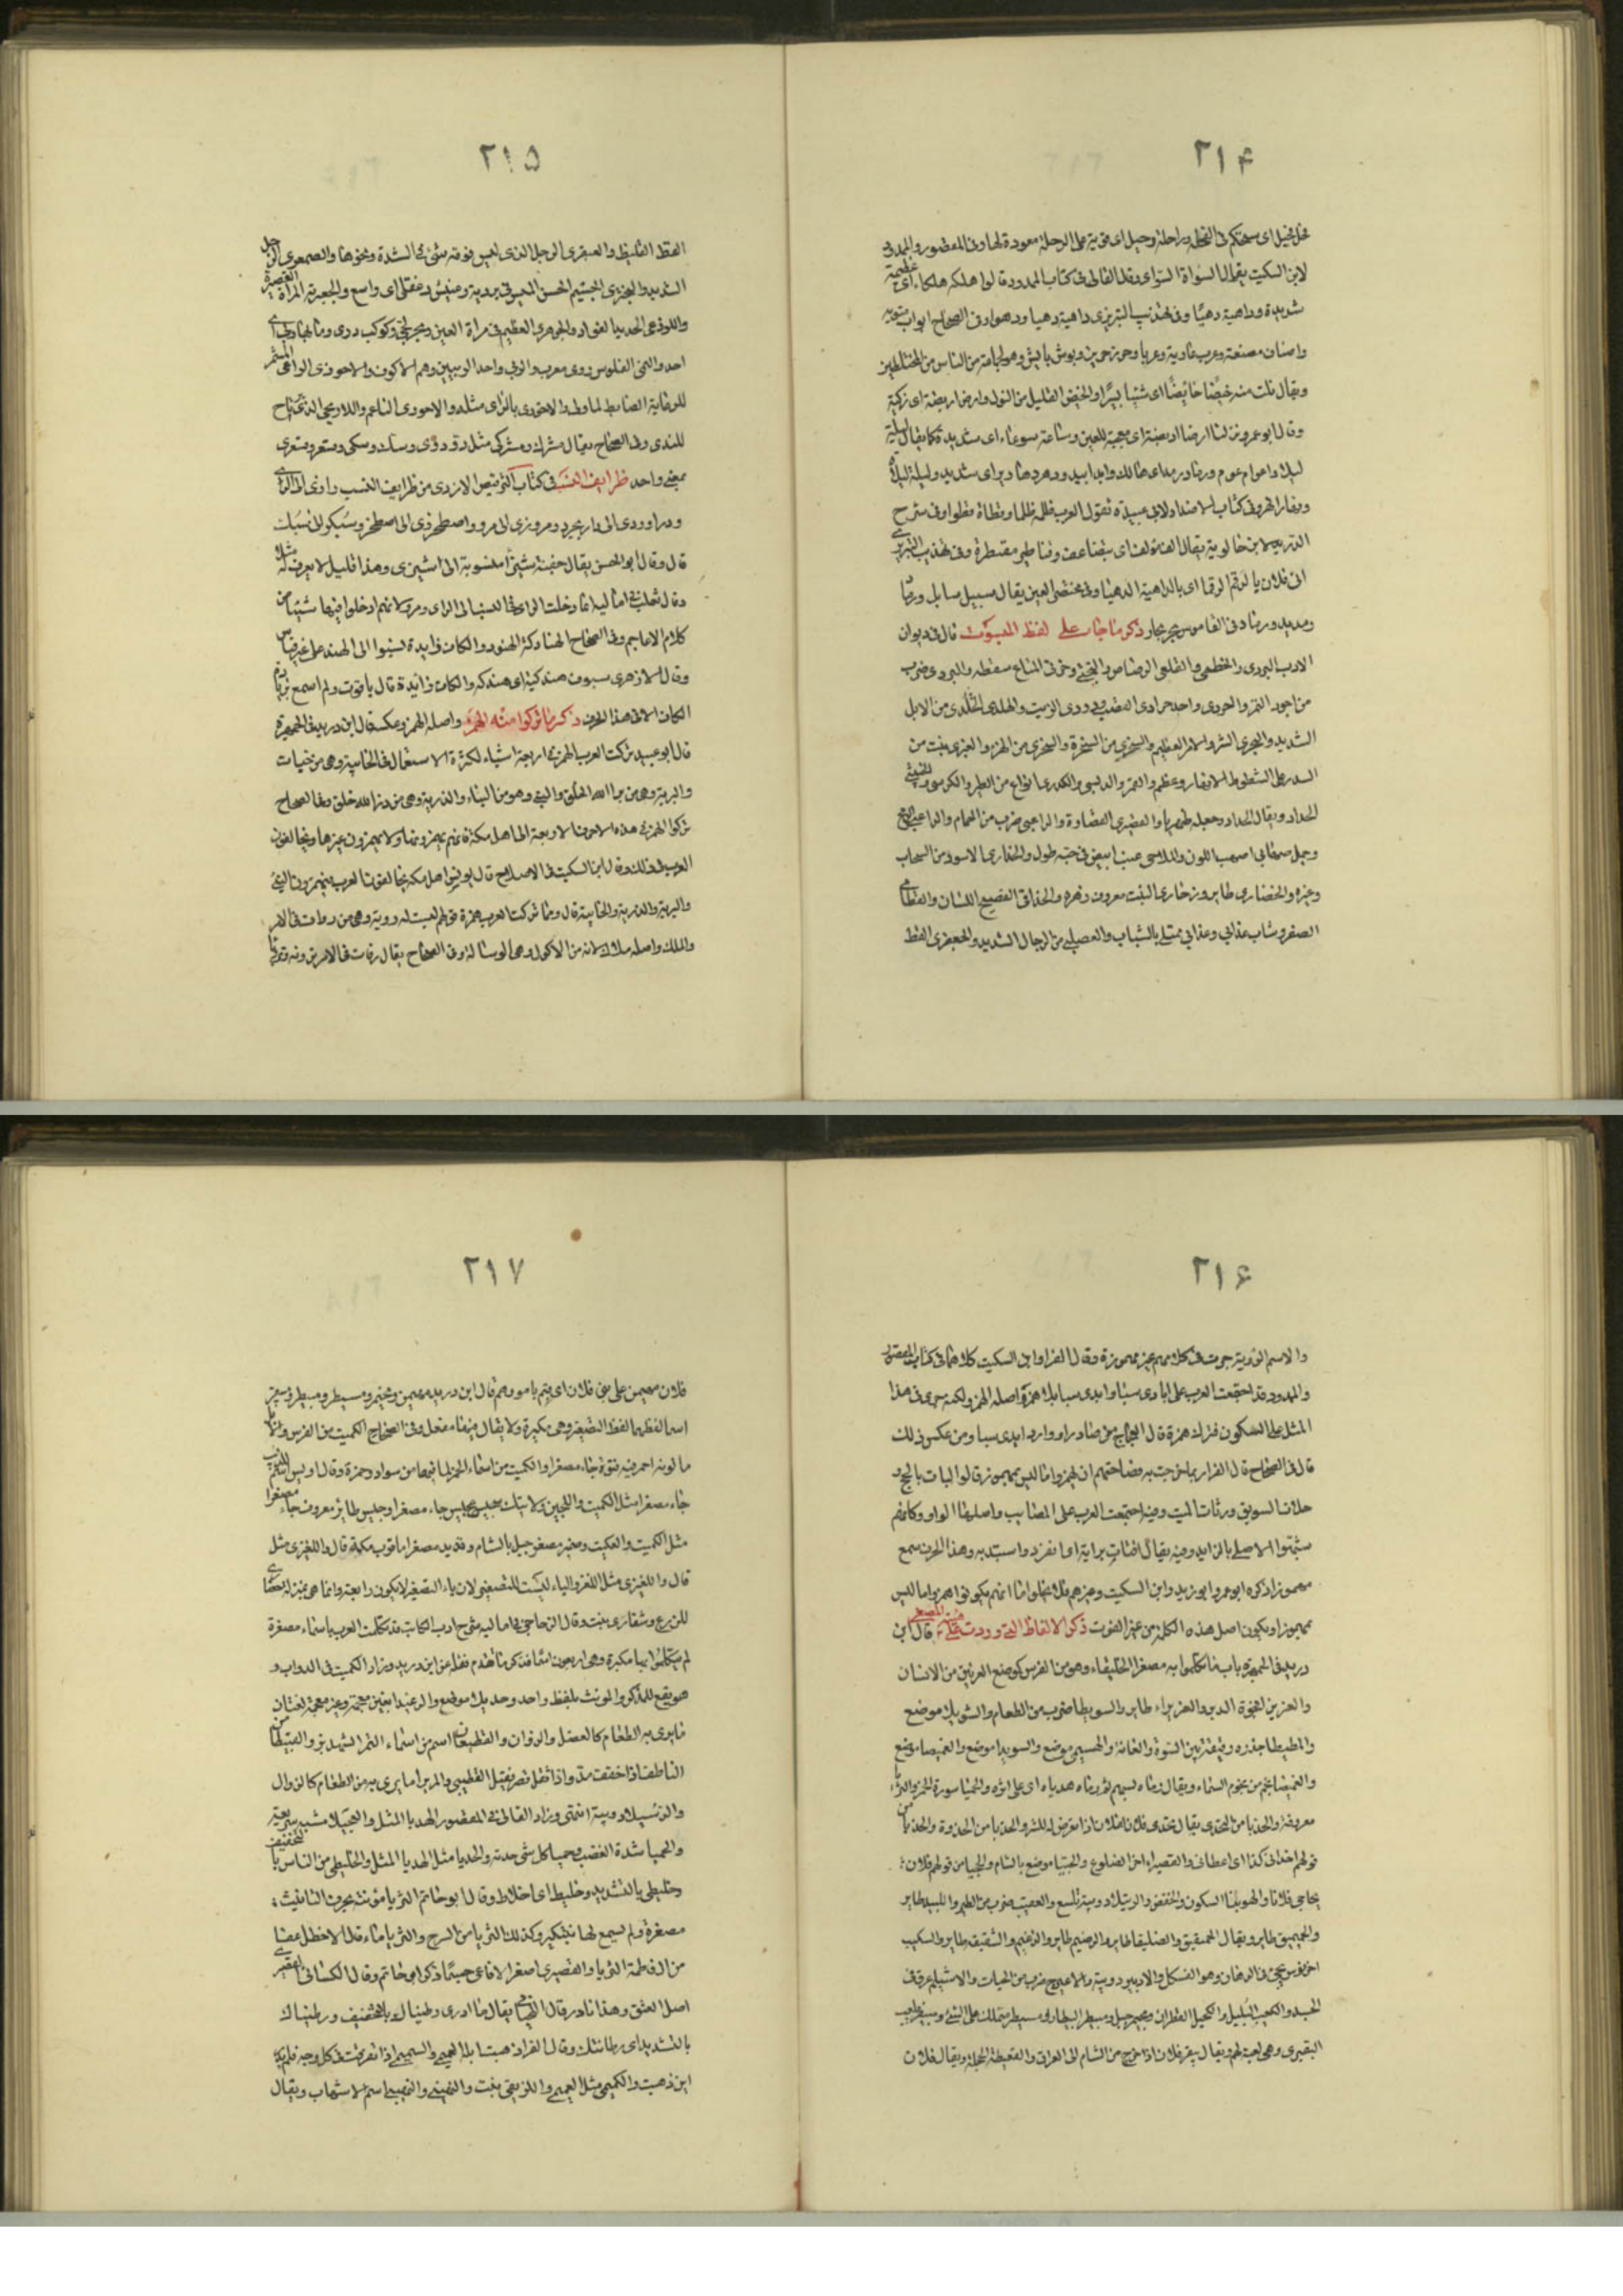 ٢١۴
فحل فحيل اى مستحكم فى الفحلة وراحلة رحيل اى قوية على الرحلة معودة لها وفى المقصور والممدود
لابن السكيت يقال السوأة السوأى وقال القالى فى كتاب الممدود قالوا هلكة هلكاء اى عظيمة
شديدة وداهية دهياء وفى تهذيب التبريزى داهية دهياء ودهواء وفى الصحاح ابواب مبوبة
واصناف مصنفة وعرب عاربة وعرباء وحرز حريز وبوش بائش وهو الجماعة من الناس من المختلطين
ويقال نلت منه خيصًا خائصًا اى شيئا يسيرًا والخيص القليل من النول وارض اريضة اى زكية
وقال ابو عمرو نزلنا ارضا اريضة اى معجبة للعين وساعة سوعاء اى شديدة كما يقال ليلة
ليلاء واعوام عوم ورماد رمدد اى هالك وابد ابيد ودهر دهارير اى شديد وليلة ليلاء
ونهار انهر وفى كتاب الاضداد لابى عبيدة تقول العرب ظلمة ظلماء وقطاة قطواء وفى شرح
الدريدية لابن خالويه يقال الف مؤلف اى بضاعف وقناطير مقنطرة وفى تهذيب التبريزى
اتى فلان بالرقم الرقماء اى بالداهية الدهياء وفى مختصر العين يقال سبيل سابل ورماد
ومديد ورماد وفى القاموس بحر بحار ذكر ما جاء على لفظ المنسوب قال فى ديوان
الادب البردى والخطمى والقلعى الرصاص والخرثى وخرثى المتاع سقطه والبردى ضرب
من اجود التمر والحردى واحد حرادى القصب ودردى الزيت والهلدى الجلدى من الابل
الشديد والبحرى الشر والامر العظيم والسخرى من السخرة والسخرى من الهزء والعبرى ما نبت من
السدر على الشطوط الانهار وعظم والقمرى والدبسى والكدرى انواع من الطير والكرسى والخنثى
الحداد ويقال الحداد وجعله ظهريا والقصرى القصارة والراعبى ضرب من الحمام والزاعبى الرمح
وجمل صهابى اصهب اللون والملاحى عنب ابيض فى حبه طول والخدارى الاسود من السحاب
وغيره والخضارى طاير وزخارى النبت معروف زهره والحذاقى الفصيح اللسان والقطامى
الصقر وشاب غدانى وغذانى ممتلئ بالشباب والعصلبى من الرجال الشديد والجعظرى الفظ
٢١۵
الفظ الغليظ والعبقرى الرجل الذى ليس فوقه شئ فى الشدة ونحوها والصمعرى الرجل
الشديد والجنزى الجسيم الحسن وعيش دغفلى اى واسع والجعبرية المراة القصيرة
واللوذعى الحديد الفواد والجوهرى العظيم فى مراة العين وبحر لجى وكوكب درى وما بها دبى اى
احد والنمى الفلوس رومى معرب والربى واحد الربيين وهم الالوف والاحوذى الراعى المشمر
للرعاية الضابط لما ولى والاحوزى بالزاى مثله والاحورى الناعم والاريحى الذى يرتاح
للندى وفى الصحاح يقال مشرك ومشركى مثل دو ودوى وسك وسكى وقعسر وقعسرى
بمعنى واحد ظرايف النسب فى كتاب الترقيص للازدى من ظرايف النسب رازى الى الرى
ودراوردى الى دارابجرد ومروزى الى مرو واصطخرزى الى اصطخر وسبكرى الى سبك
قال وقال ابو الحسن يقال جفنة شيزًا منسوبة الى الشيزى وهذا قليل لا يعرف له مثل
وقال ثعلب فى اماليه انما دخلت الزاى فى النسبة الى الراى ومرو لانهم ادخلوا فيها شيئا من
كلام الاعاجم وفى الصحاح الهنادكة الهنود والكاف زايدة نسبوا الى الهند على غير قياس
وقال الازهرى سيوف هندكية اى هندكة والكاف زائدة قال ياقوت ولم اسمع بزيادة
الكاف الا فى هذا الحرف ذكر ما تركوا منه الهمزة واصله الهمز وعكسه قال ابن دريد فى الجمهرة
قال ابو عبيد تركت العرب الهمز فى اربعة اشياء لكثرة الاستعمال فى الخابية وهى من خبات
والبرية وهى من برأ الله الخلق والنبى وهو من النباء والذرية وهى من ذرأ الله خلق وفى الصحاح
تركوا الهمز فى هذه الاحرف الاربعة الا اهل مكة فانهم يهمزونها ولا يهمزون غيرها ويخالفون
العرب فى ذلك وقال ابن السكيت فى الاصلاح قال يونس اهل مكة يخالفون العرب يهمزون النبئ
والبرية والذرية والخابية قال ومما تركت العرب همزة قولهم ليست له روية وهى من روات فى الامر
والملك واصله ملاك لانه من الالوك وهى الرسالة وفى الصحاح يقال روات فى الامر
٢١۶
والاسم الروية جرت فى كلامهم غير مهموزة وقال الفرا وابن السكيت كلاهما فى كتاب المقصور
والممدود قد اجتمعت العرب على ايادى سبا وايدى سبا بلا همزة واصله الهمز ولكنه جرى فى هذا
المثل على السكون فترك همزة قال العجاج من صادر او وارد ايدى سبا ومن عكس ذلك
قال فى الصحاح قال الفرا ربما خرجت به فصاحتهم ان همزوا ما ليس بمهموز قالوا لبات بالحج و
حلات السويق ورثات الميت وفيه اجتمعت العرب على المصائب واصلها الواو وكانهم
شبهوا الاصلى بالزايد وفيه يقال افتات برايه اى انفرد واستبد به وهذا الحرف سمع
مهموزا ذكره ابو عمرو وابو زيد وابن السكيت وغيرهم فلا يخلو اما انهم يكونوا همزوا ما ليس
بمهموز او يكون اصل هذه الكلمة من غير الفوت ذكر الالفاظ التى وردت على هيئة المصغر قال ابن
دريد فى الجمهرة باب ما تكلموا به مصغرا الخليقاء وهو من الفرس كموضع العرنين من الانسان
والعزيزاء فجوة الدبر والغريراء طاير والسويطا ضرب من الطعام والشويلا موضع
والمطيطا جذره وثيقة بين السوة والعانة والهسيمى موضع والسويدا موضع والغميصا موضع
والغميصا نجم من نجوم السماء ويقال رماه بسهم ثم رماه هدياه اى على اثره والحميا سورة الخمر والثريا
معروفة والحديا من التحدى يقال تحدى فلان لفلان اذا تعرض له للشر والحذيا من الحذوة والحذيا من
قولهم احذانى كذا اى اعطانى والقصيراء اخر الضلوع والجبيا موضع بالشام والحجيا من قولهم فلان
يحاجى فلانا والهوينا السكون والخفض والرتيلا دويبة تلسع والعقيب ضرب من الطير والبيد طاير
والحميق طاير ويقال الحميميق والصليقا طاير والرضيم طاير والزغيم والشقيق طاير والسكيت
اخر فرس يجئ فى الرهان وهو الفسكل والاديبر دويبة والاعيرج ضرب من الحيات والاسيلم عرق فى
الجسد والكعيت البلبل والكحيل القطران ومجيمر جبل ومبيطر البيطار ومسيطر متملك على الشئ ومبيقر يلعب
البقيرى وهى لعبة لهم ويقال بيقر فلان اذا خرج من الشام الى العراق والقعيطة الحجلة ويقال فلان
٢١٧
فلان مهيمن على بنى فلان اى قيم بامورهم قال ابن دريد مهيمن ومجيمر ومسيطر ومبيطر ومبيقر
اسما لفظها لفظ التصغير وهى مكبرة ولا يقال فيها مفعل وفى الصحاح الكميت من الفرس والابل
ما لونه احمر فيه قنوة جاء مصغرا والكميت من اسماء الخمر لما فيها من سواد وحمرة وقال اويس اسم للذئب
جاء مصغرا مثل الكميت واللجين ولا اتيك سجيس عجيس جاء مصغرا وجليس طائر معروف جاء مصغرا
مثل الكميت والعكيت ومعيتر مصغر جبل بالشام وقديد مصغرا ما قرب مكة قال واللغيزى مثل
قال واللغيزى مثل اللغز والياء ليست للتصغير لان ياء التصغير لا يكون رابعة وانما هى بمنزلة خضارى
للزرع وشقارى نبت وقال الزجاجى فى اماليه شرح ادب الكاتب قد تكلمت العرب باسماء مصغرة
لم يتكلموا بها مكبرة وهى اربعون اسما فذكر ما تقدم نقله عن ابن دريد وزاد الكميت فى الدواب و
هو يقع للمذكر والمونث بلفظ واحد وحديلاء موضع والرغيدا بغين معجمة وغير معجمة لغتان
ما يرى به الطعام كالعصل والزوان والقطيعا اسم من اسماء التمر الشهريز والقبيطا من
الناطف اذا خففت مد واذا ثقل قصر فقيل القطيبى والمريرا ما يرى به من الطعام كالزوال
والرتيلا دويبة انتهى وزاد القالى فى المقصور الهديا المثل والعجيلا مشية سريعة
والحميا شدة الغضب وحميا كل شئ حدته والحديا مثل الهديا المثل والخليطى من الناس بالتخفيف
وخليطى بالتشديد وخليط اى اخلاط وقال ابو حاتم الثريا مؤنثة بحرف التانيث
مصغرة ولم يسمع لها بتكبير وكذلك الثريا من السرج والثريا ماء قال الاخطل عفا
من ال فاطمة الثريا والقصيرى اصغر الافاعى جسمًا ذكر ابو حاتم وقال الكسائى القصير
اصل العنق وهذا نادر قال اللحيانى يقال ما ادرى رطيناك بالتخفيف ورطيناك
بالتشديد اى رطانتك وقال الفرا ذهبت ابله العميهى والسميهى اذا تفرقت فى كل وجه فلم يدر
اين ذهبت والكميهى مثل العميهى واللزيقى نبت والنهيبى والنهيبى اسم الانتهاب ويقال